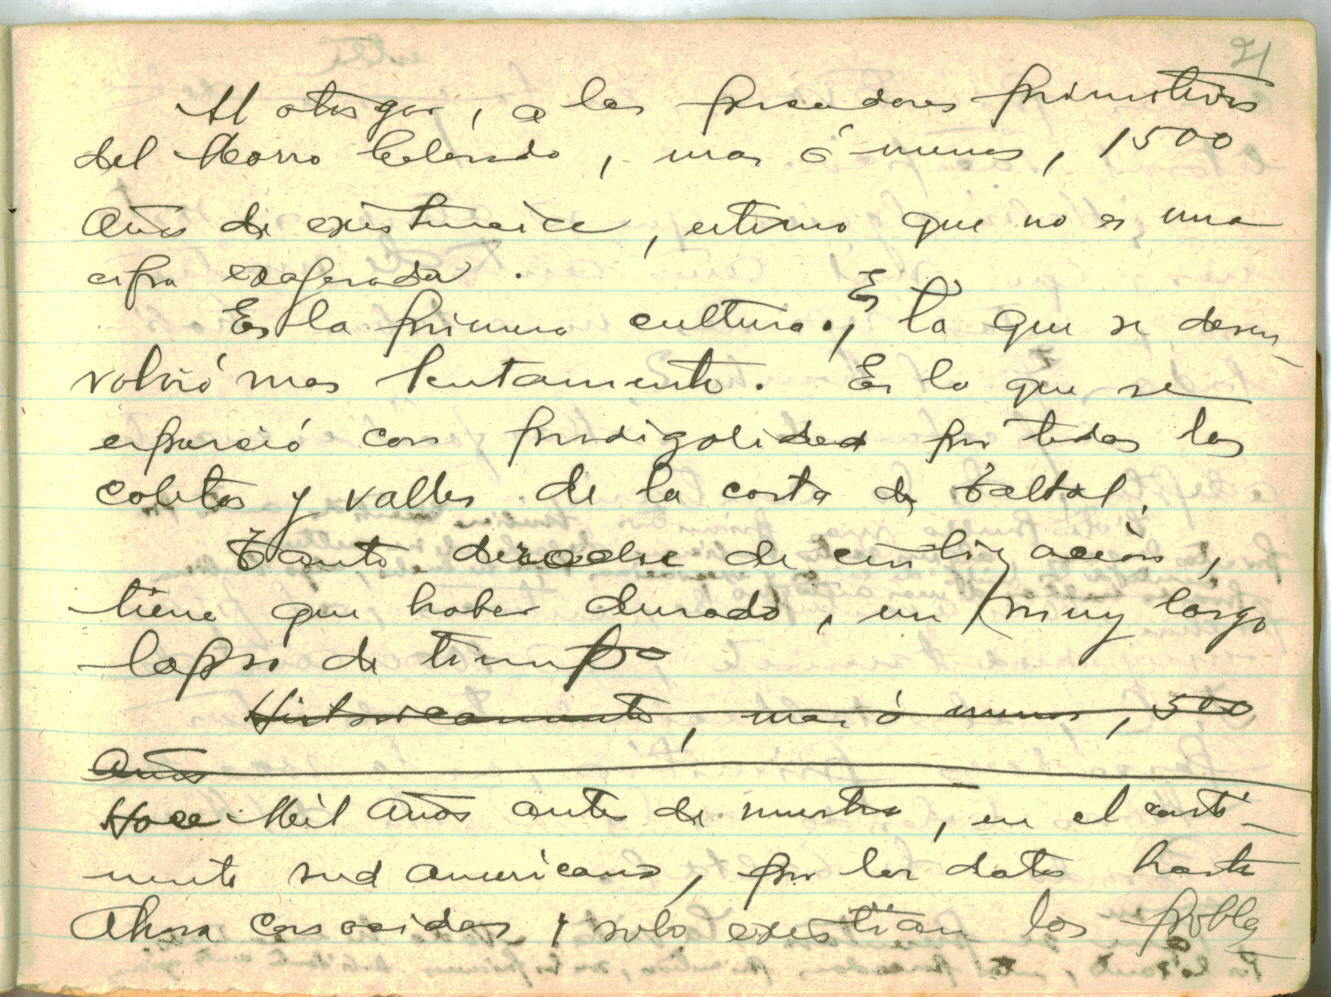 21
Al otorgar, a los pescadores primitivos
del Morro Colorado, mas ó menos, 1500
años de existencia, estimo que no es una
cifra exagerada.
Es la primera cultura., Es la que se desen-
volvió mas lentamente. Es la que se
esparció con prodigalidad por todas las
caletas y valles de la costa de Taltal,
Tanto derroche de civilización,
tiene que haber durado, un muy largo
lapso de tiempo
Historicamente, mas ó menos, 500
años
Hace Mil años antes de nuestra, en el conti-
nente sud americano, por los datos hasta
ahora conocidos, solo existían los pobla